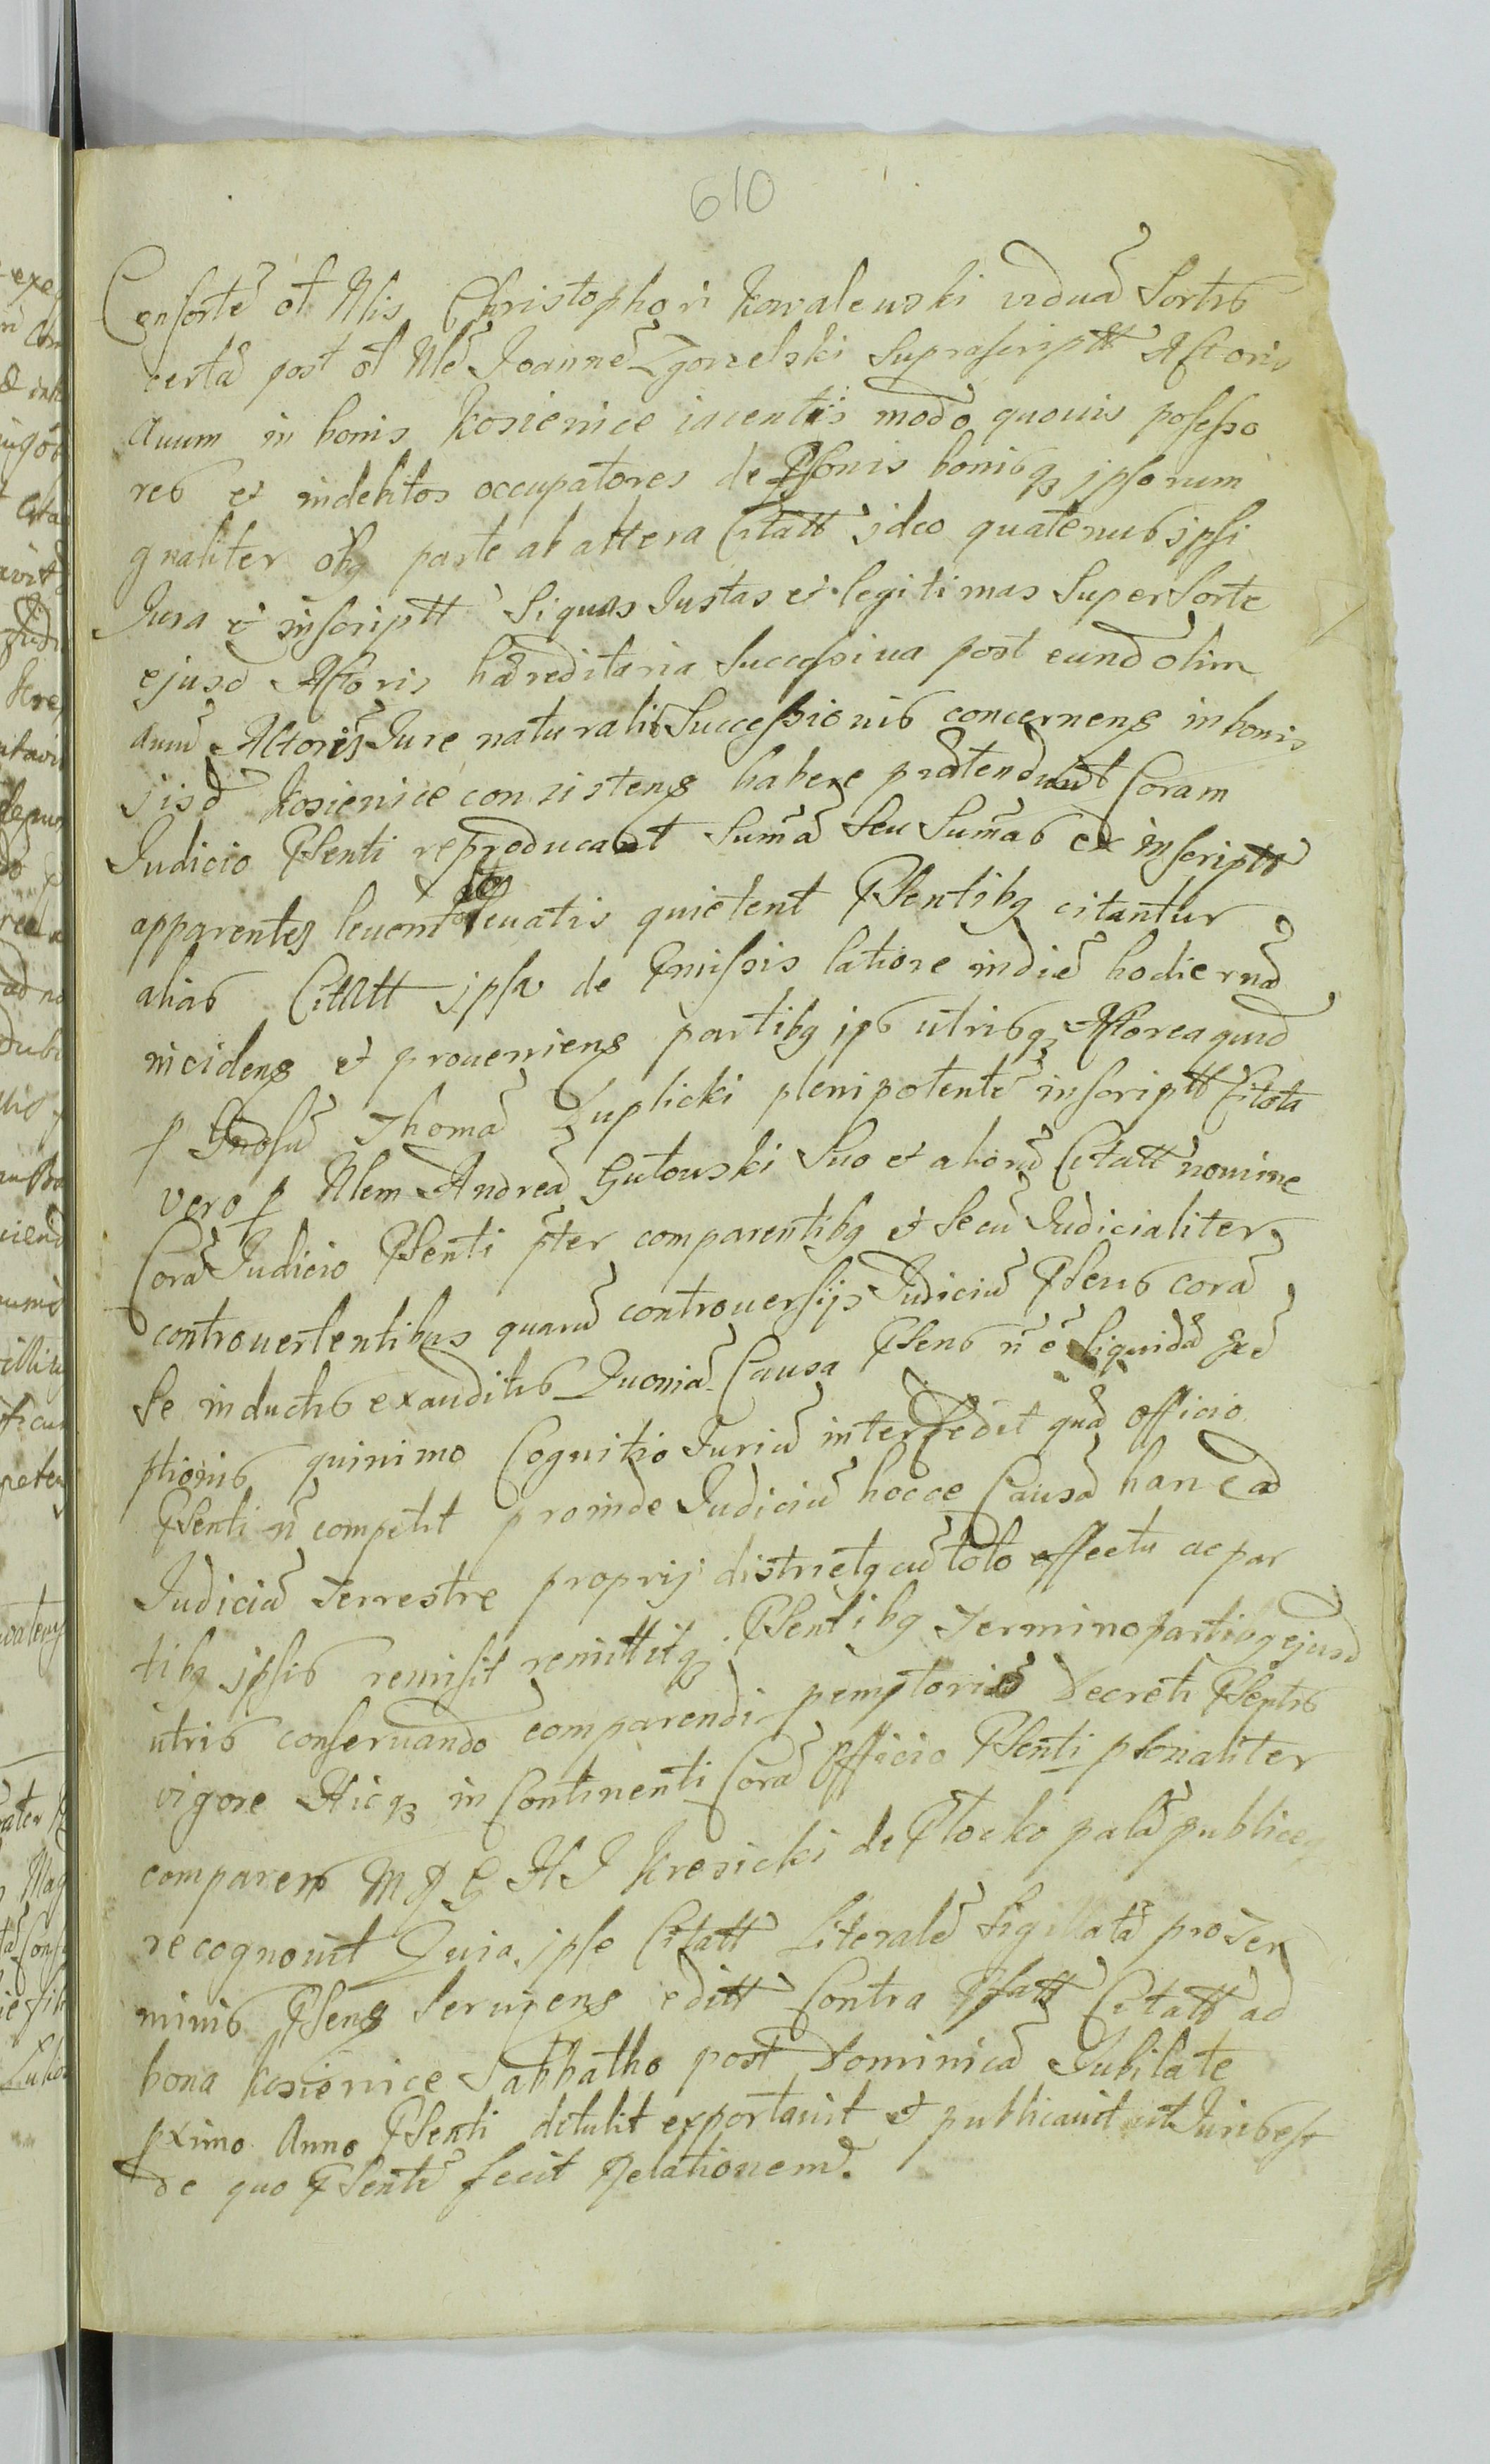 610
Consortẽ ol Nlis Christophori Kowalewski viduã Sortis
certã post ol Nlẽ Joannẽ Zgorzelski Suprascriptt Actoris
Avum in bonis Kosienice iacentis modo quovis possesso
res et indebitos occupatores de Psonis bonisq ipsorum
gnaliter oibq parte ab altera Citatt ideo quatenus ipsi
Jura et inscriptt Siquas Justas et legitimas Super Sorte
ejusd Actoris hæreditaria Successiva post eund olim
avum Actoris Jure naturalis Successionis concernens in bonis
jisd Kosienice consistens habere prætendunt Coram
Judicio Psenti reproducant Summã Seu Summas ex inscriptt
apparentes levent levatis quietent Psentibq citantur
alias Citatt ipsa de Pmissis latiore in diẽ hodiernã
incidens et proveniens partibq ips utrisq Actorea quid
p Gnosũ Thomã Łuplicki plenipotentẽ inscriptt Citata
vero p Nlem Andreã Gutowski Suo et aliorũ Citatt nomine
Corã Judicio Psenti pter comparentibq et Secũ Judicialiter
controvertentibus quarũ controversijs Judiciũ Psens corã
Se inductis exauditis Quoniã Causa Psens ñ ẽ liquida exẽ
ptionis quinimo Cognitio Juriũ intercedit quæ officio
Psenti ñ competit proinde Judiciũ hocce Causã hanc ad
Judiciũ Terrestre proprij districtq cũ toto effectu ac par
tibq ipsis remisit remittitq Psentibq Termino partibq ejusd
utris conservando comparendi pemptoriẽ Decreti Psentis
vigore Hicq in Continenti Corã Officio Psenti psonaliter
comparens M R G H J Kresicki de Płocko palã publice
recognovit Quia ipse Citatt Literalẽ Sigillatã pro Ter
minis Psens Serviens editt Contra Pfatt Citatt ad
bona Kosienice Sabbatho post Dominicã Jubilate
pximo Anno Psenti detulit exportavit et publicavit ut Juris est
De quo Psentẽ fecit Relationem.